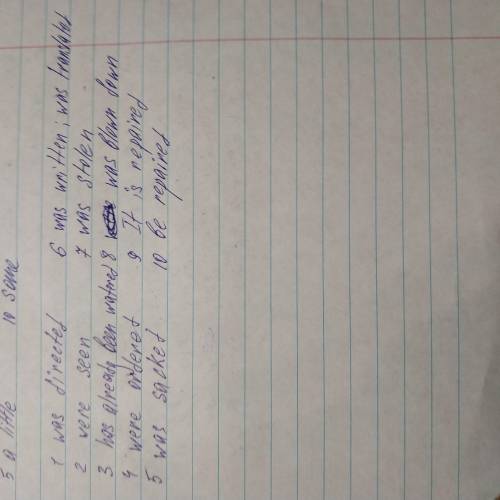 5 a little 10 some
1 was directed 6 was written; was translated
2 were seen 7 was stolen
3 has already been watned 8 was blown down
4 were orderet 9 It is repaired
5 was sacket 10 be repaired